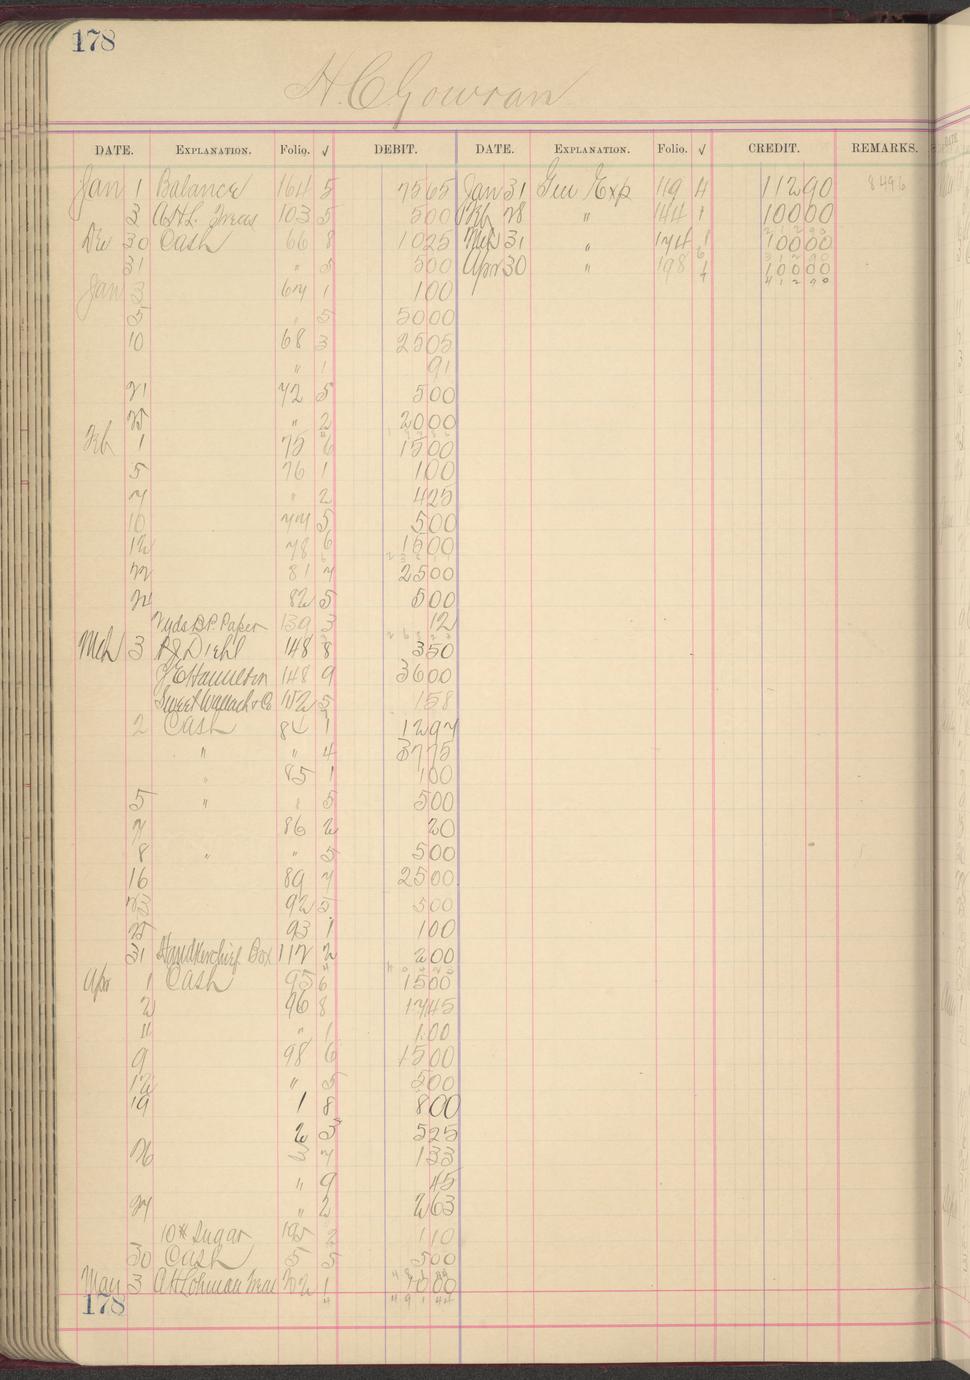 178
H. C. Gowran
DATE. EXPLANATION. Folio. √ DEBIT. DATE. EXPLANATION. Folio. √ CREDIT. REMARKS.
Jan 1 Balance 164 5 75 65 Jan 31 Gen Exp 119 4 112 90 84 96
3 A.H.L. Treas 103 5 5 00 Feb 28 " 144 1 100 00
Dec 30 Cash 66 8 10 25 Mch 31 " 174 1 100 00
31 " 5 5 00 Apr 30 " 198 100 00
Jan 3 67 1 1 00 412 90
5 " 5 50 00
10 68 3 25 05
" 1 91
21 72 5 5 00
25 " 2 20 00
Feb 1 75 6 15 00
5 76 1 1 00
7 " 2 4 25
10 77 5 5 00
12 78 6 15 00
22 81 7 25 00
24 82 5 5 00
yds B.P. Paper 139 3 12
Mch 3 Diehl 148 8 3 50
J E Hamilton 148 9 36 00
Sweet Wallach & Co 152 5 1 58
2 Cash 84 1 12 97
" " 4 37 75
" 85 1 1 00
5 " " 5 5 00
7 86 2 20
8 " " 5 5 00
16 89 7 25 00
23 92 5 5 00
25 93 1 1 00
31 Handkerchief Box 112 2 2 00
Apr 1 Cash 95 6 15 00
2 96 8 17 45
11 " 1 1 00
9 98 6 15 00
12 " 5 5 00
19 1 8 8 00
2 3 5 25
26 3 7 1 33
" 9 45
27 " 2 2 63
10# Sugar 195 2 1 10
30 Cash 5 5 5 00
May 3 A H Lohman Treas 202 1 10 00
178 491 44